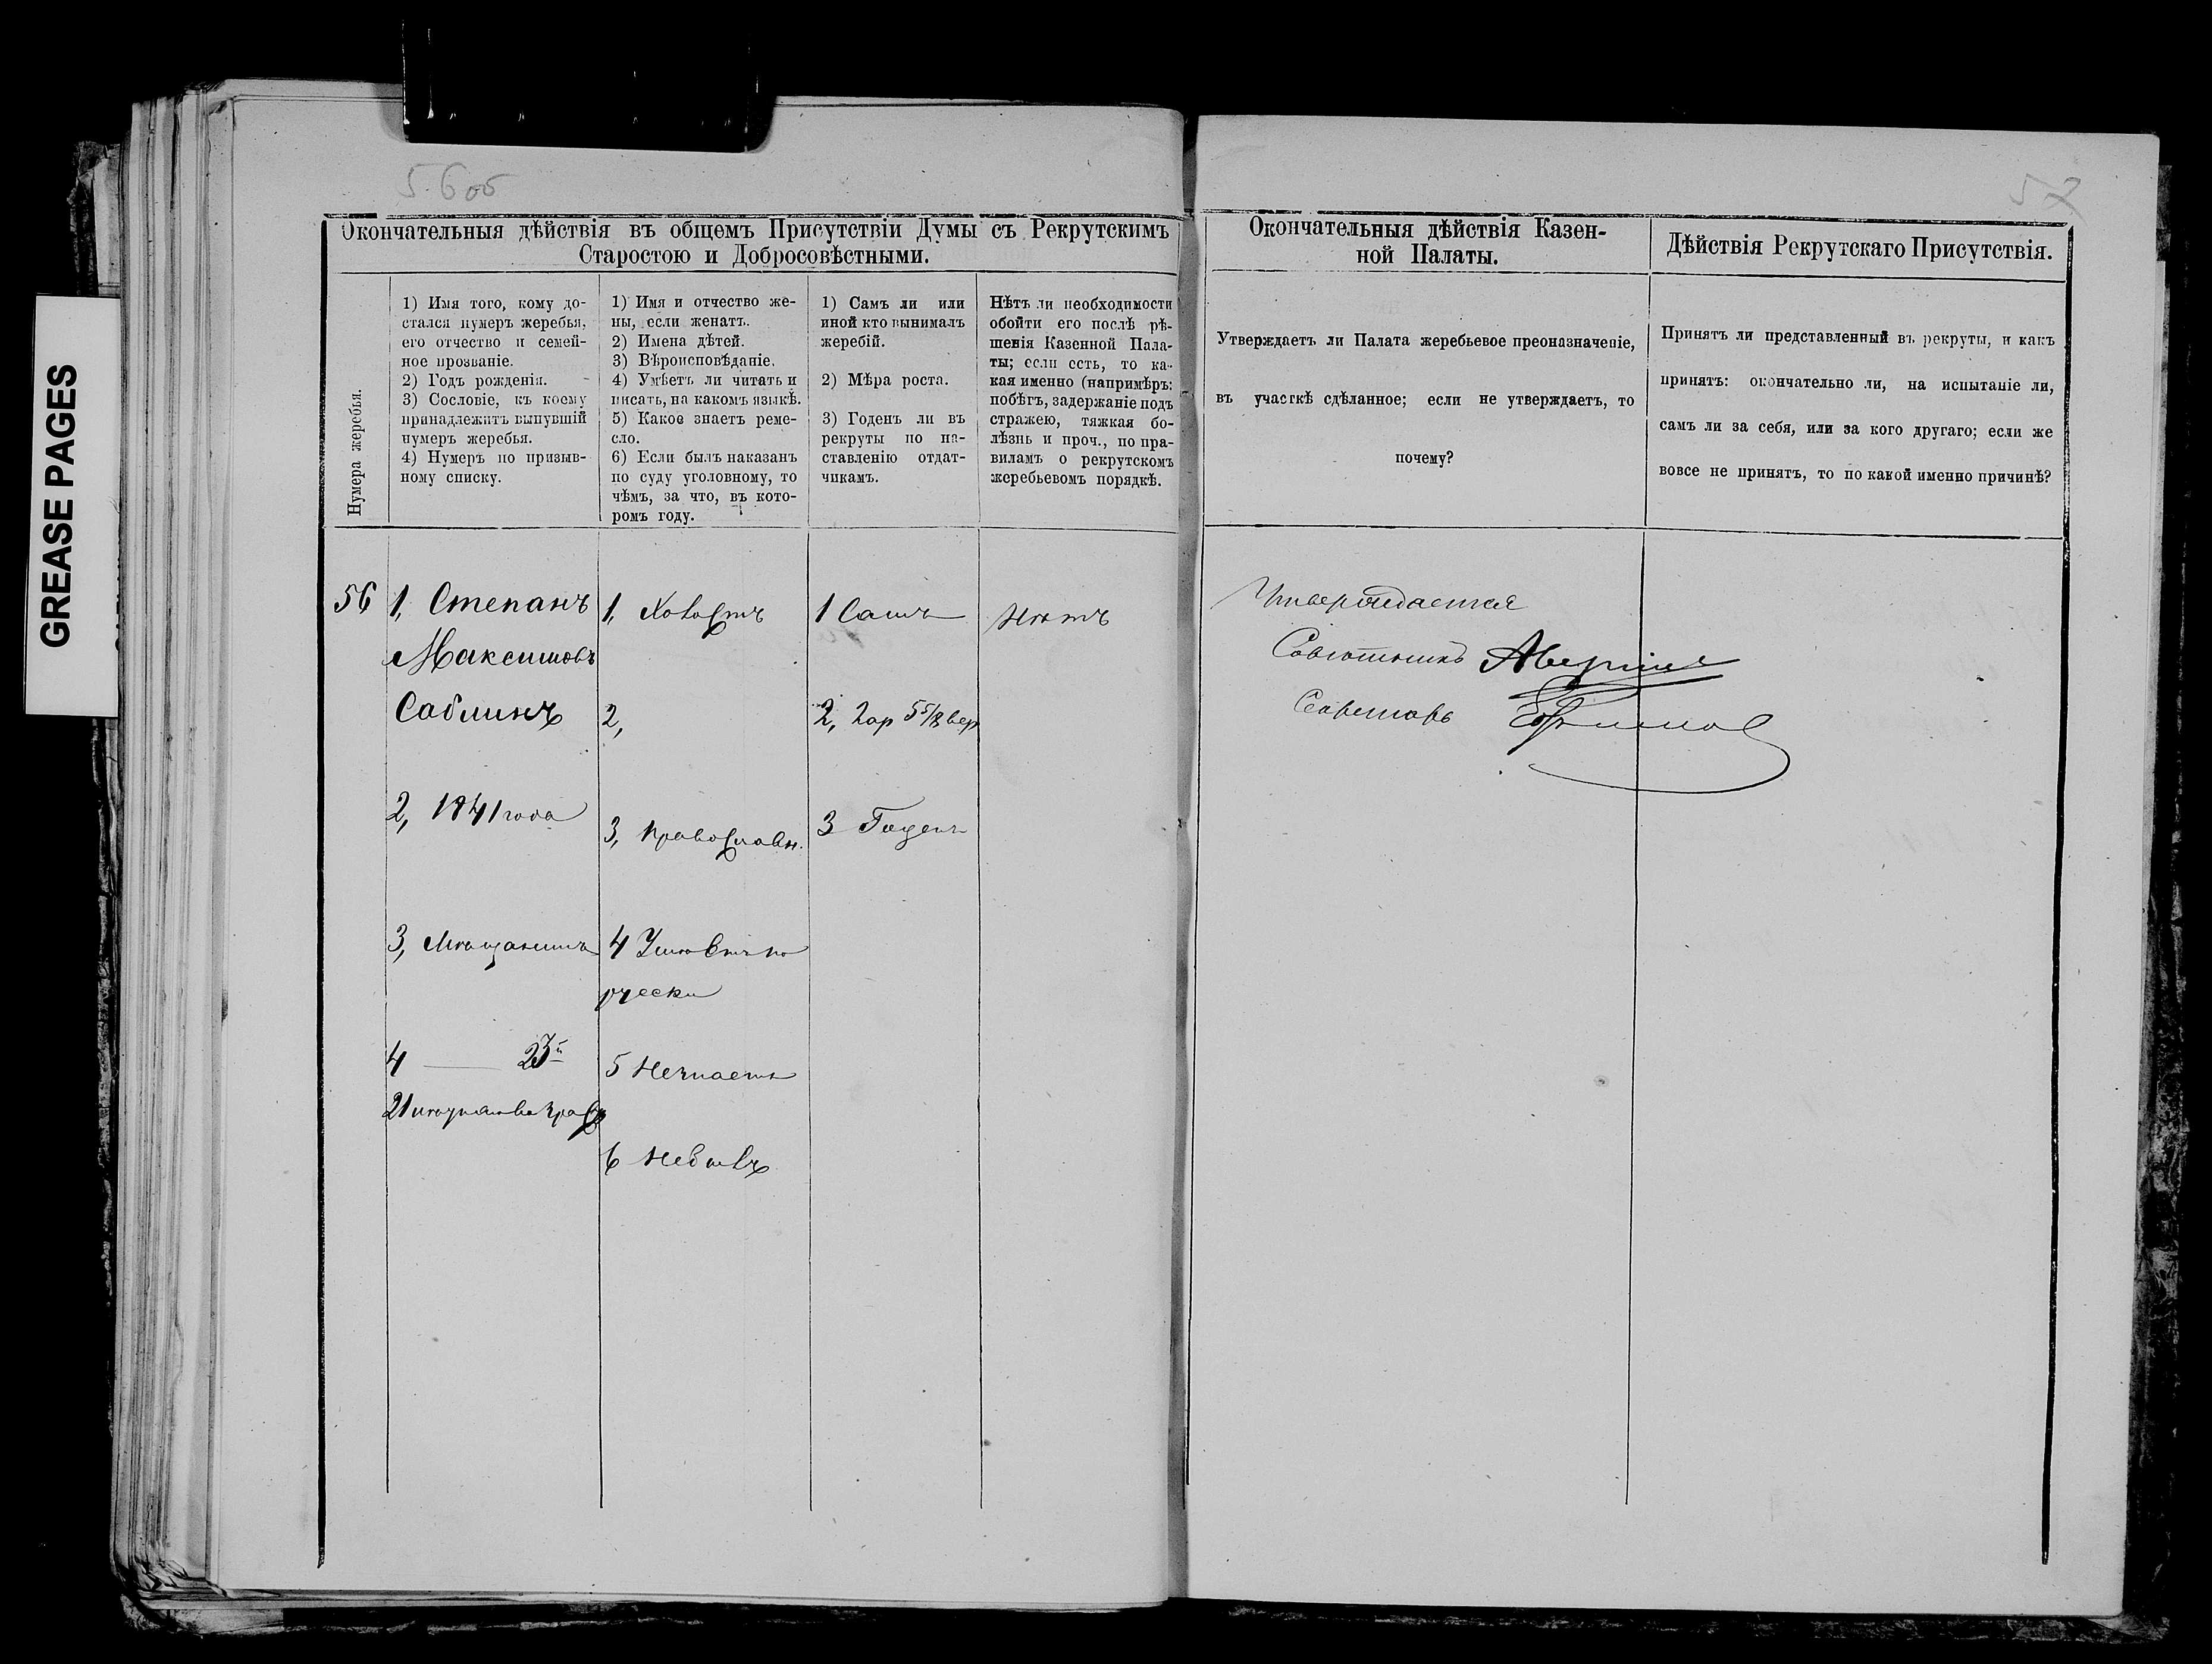 GREASE PAGES
56 об
57
Окончательныя дѣйствія въ общемъ Присутствіи Думы съ Рекрутскимъ
Старостою и Добросовѣстными.
Нумера жеребья.
1) Имя того, кому до-
стался нумеръ жеребья,
его отчество и семей-
ное прозваніе.
2) Годъ рожденія.
3) Сословіе, къ коему
принадлежитъ вынувшій
нумеръ жеребья.
4) Нумеръ по призыв-
ному списку.
1) Имя и отчество же-
ны, если женатъ.
2) Имена дѣтей.
3) Вѣроисповѣданіе.
4) Умѣетъ ли читать и
писать, на какомъ языкѣ.
5) Какое знаетъ реме-
сло.
6) Если былъ наказанъ
по суду уголовному, то
чѣмъ, за что, въ кото-
ромъ году.
1) Самъ ли или
иной кто вынималъ
жеребій.
2) Мѣра роста.
3) Годенъ ли въ
рекруты по на-
ставленію отдат-
чикамъ.
Нѣтъ ли необходимости
обойти его послѣ рѣ-
шенія Казенной Пала-
ты; если есть, то ка-
кая именно (напримѣръ:
побѣгъ, задержаніе подъ
стражею, тяжкая бо-
лѣзнь и проч., по пра-
виламъ о рекрутскомъ
жеребьевомъ порядкѣ.
Окончательныя дѣйствія Казен-
ной Палаты.
Утверждаетъ ли Палата жеребьевое преоназначеніе,
въ участкѣ сдѣланное; если не утверждаетъ, то
почему?
Дѣйствія Рекрутскаго Присутствія.
Принятъ ли представленный въ рекруты, и какъ
принятъ: окончательно ли, на испытаніе ли,
самъ ли за себя, или за кого другаго; если же
вовсе не принятъ, то по какой именно причинѣ?
56
1, Степанъ
Максимовъ
Саблинъ
2, 1841 года
3, Мѣщанинъ
4 — 23й
1, Холостъ
2,
3, Православн.
4 Умѣетъ по
русски
5 Незнаетъ
6 Небылъ
1 Самъ
2, 2 ар 5 5/8 вер
3 Годенъ
Нѣтъ
Утверждается
Совѣтникъ Аверкіев
Секретарь Ефимов